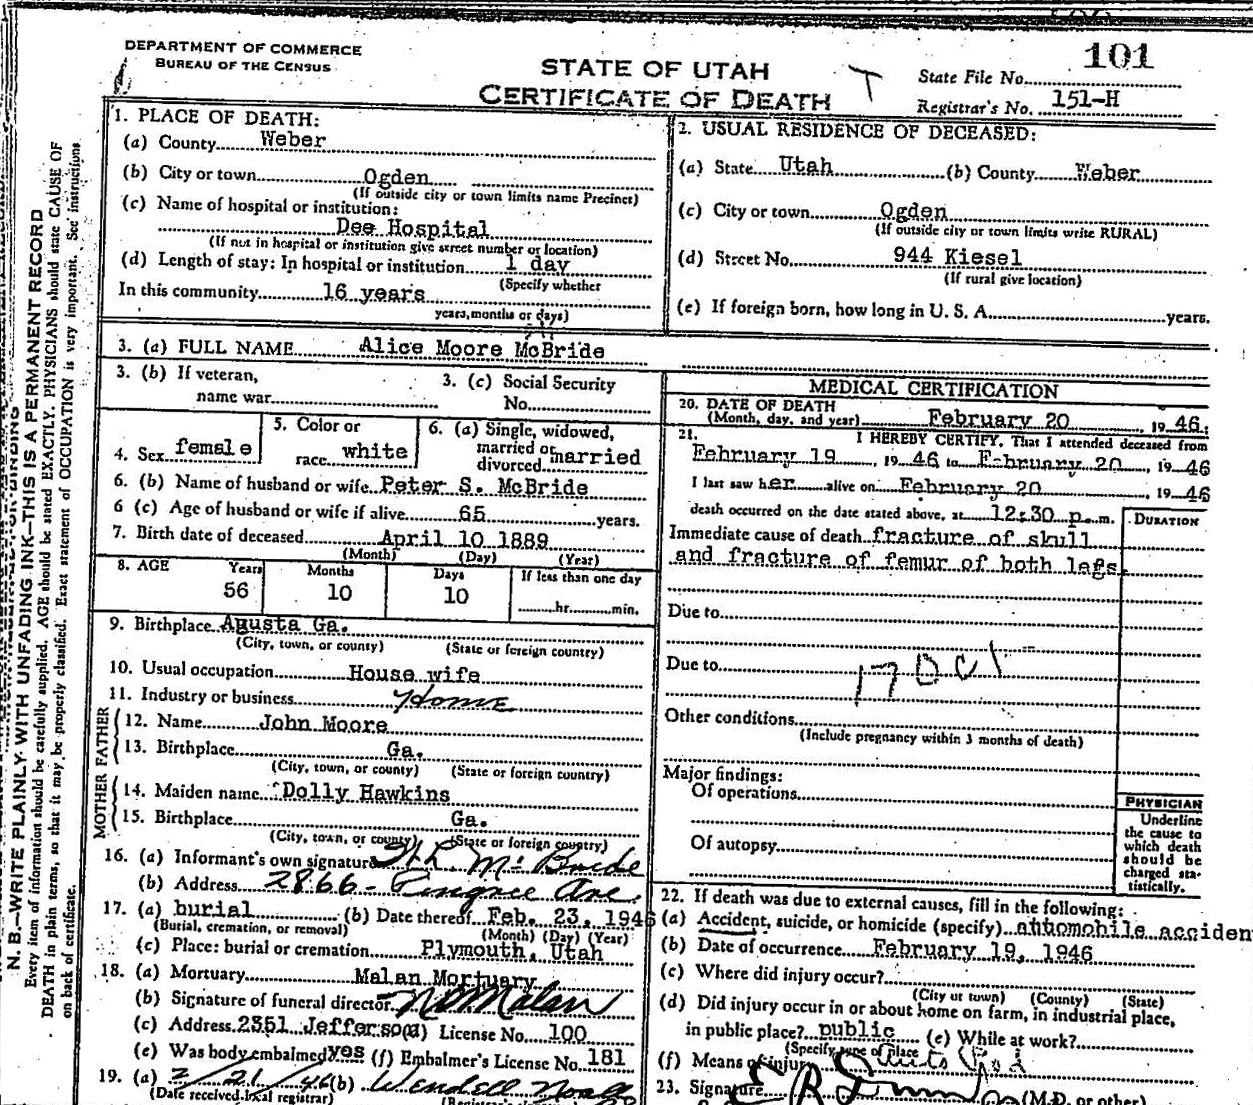 101
DEPARTMENT OF COMMERCE
BUREAU OF THE CENSUS
STATE OF UTAH
CERTIFICATE OF DEATH
T
State File No.
Registrar's No. 151-H
N. B.—WRITE PLAINLY WITH UNFADING INK—THIS IS A PERMANENT RECORD
Every item of information should be carefully supplied. AGE should be stated EXACTLY. PHYSICIANS should state CAUSE OF
DEATH in plain terms, so that it may be properly classified. Exact statement of OCCUPATION is very important. See instructions
on back of certificate.
1. PLACE OF DEATH:
(a) County Weber
(b) City or town Ogden
(If outside city or town limits name Precinct)
(c) Name of hospital or institution:
Dee Hospital
(If not in hospital or institution give street number or location)
(d) Length of stay: In hospital or institution 1 day
(Specify whether
In this community 16 years
years, months or days)
2. USUAL RESIDENCE OF DECEASED:
(a) State Utah (b) County Weber
(c) City or town Ogden
(If outside city or town limits write RURAL)
(d) Street No. 944 Kiesel
(If rural give location)
(e) If foreign born, how long in U. S. A. years.
3. (a) FULL NAME Alice Moore McBride
3. (b) If veteran,
name war
3. (c) Social Security
No.
4. Sex female
5. Color or
race white
6. (a) Single, widowed,
married or
divorced married
6. (b) Name of husband or wife Peter S. McBride
6 (c) Age of husband or wife if alive 65 years.
7. Birth date of deceased April 10 1889
(Month) (Day) (Year)
8. AGE Years Months Days If less than one day
56 10 10 hr. min.
9. Birthplace Agusta Ga.
(City, town, or county) (State or foreign country)
10. Usual occupation House wife
11. Industry or business Home
FATHER
12. Name John Moore
13. Birthplace Ga.
(City, town, or county) (State or foreign country)
MOTHER
14. Maiden name Dolly Hawkins
15. Birthplace Ga.
(City, town, or county) (State or foreign country)
16. (a) Informant's own signature McBride
(b) Address 2866 - Pingree Ave.
17. (a) burial (b) Date thereof Feb. 23, 1946
(Burial, cremation, or removal) (Month) (Day) (Year)
(c) Place: burial or cremation Plymouth, Utah
18. (a) Mortuary Malan Mortuary
(b) Signature of funeral director Malan
(c) Address 2351 Jefferson (d) License No. 100
(e) Was body embalmed yes (f) Embalmer's License No. 181
19. (a) 2/21/46 (b) Wendell
(Date received local registrar)
MEDICAL CERTIFICATION
20. DATE OF DEATH
(Month, day, and year) February 20, 19 46.
21. I HEREBY CERTIFY, That I attended deceased from
February 19, 19 46 to February 20, 19 46
I last saw her alive on February 20, 19 46
death occurred on the date stated above, at 12:30 p. m.
DURATION
Immediate cause of death fracture of skull
and fracture of femur of both legs.
Due to
Due to
Other conditions
(Include pregnancy within 3 months of death)
Major findings:
Of operations
Of autopsy
PHYSICIAN
Underline
the cause to
which death
should be
charged sta-
tistically.
22. If death was due to external causes, fill in the following:
(a) Accident, suicide, or homicide (specify) automobile acciden
(b) Date of occurrence February 19, 1946
(c) Where did injury occur?
(City or town) (County) (State)
(d) Did injury occur in or about home on farm, in industrial place,
in public place? public (e) While at work?
(Specify type of place
(f) Means of injury
23. Signature (M.D. or other)